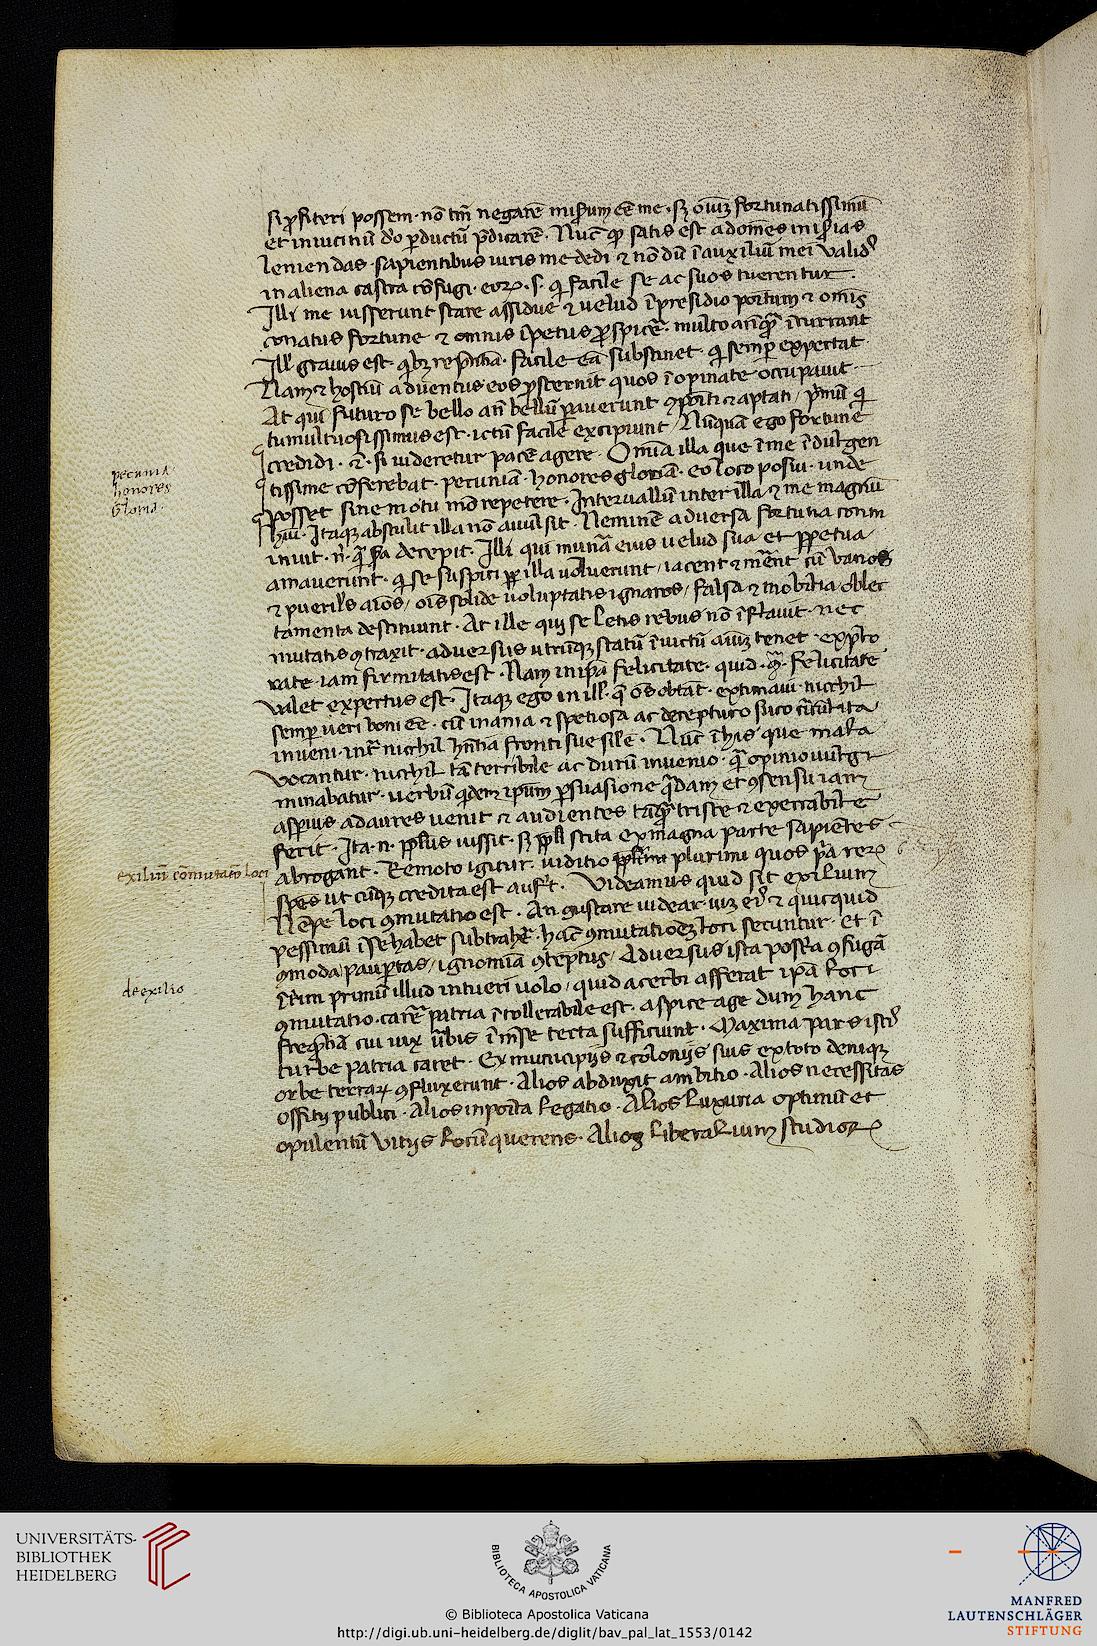 si ꝓfiteri possem · nō tm̄ negarē miẜum eē me · sꝫ oīuꝫ fortunatissimū
et in uicinū deo ꝑductū p̄dicarē · Nūc qͦ satis est ad omēs miẜias
leniendas · sapientibus uiris me dedi ⁊ nō dū ī auxiliū mei ualidꝰ
in aliena castra cōfugi · eoꝝ · s · qͥ facile se ac suos tuerentur ·
Illi me iusserunt stare assidue ⁊ uelud ī presidio positum ⁊ omīs
conatus fortune ⁊ omnis īpetus ꝓspicē · multo an̄ qͣꝫ īcurrant
Illī grauis est qͥbꝫ repentina · facile eā substinet · qͥ semꝑ expectat
Nam ⁊ hostiū aduentus eos ꝓsternit quos īopinate occupauit ·
At qui futuro se bello an̄ bellū ꝑauerunt ꝯpositi ⁊ aptati / pͥmū qͥ
tumultuosissimus est · ictū facile excipiunt / Nūquā ego fortune
credidi · ⁊ · si uideretur pacē agere · Omīa illa que ī me īdulgen
tissime cōferebat · pecuniā · honores gloriā · eo loco posui · unde
posset sine motu meo repetere · Interuallū inter illa ⁊ me magnū
hui · Itaqꝫ abstulit illa nō auulsit · Neminē aduersa fortuna comm
inuit · n · qͣꝫ secunda decepit · Illi qui munera eius uelud sua et ꝑpetua
amauerunt · qͥ se suspici ꝓpter illa uoluerunt / iacent ⁊ merent cū vanos
⁊ pueriles aīos / oīs solide uoluptatis ignaros / falsa ⁊ mobilia oblec
tamenta destituunt · At ille qui se letis rebus nō īflauit · nec
mutatis ꝯtraxit · aduersus utrūqꝫ statū īuictū aīuꝫ tenet · explo
rate iam firmitatis est · Nam in ip̄a felicitate · quid · contra · felicitatē
valet expertus est · Itaqꝫ ego in illis · que oēs optāt · extimaui nichil
semꝑ ueri boni eē · cū inania ⁊ spetiosa ac decepturo suco circūlita
inueni · intra nichil habentia fronti sue simile · Nūc ī his que mala
vocantur · nichil tā terribile ac durū inuenio · qͣꝫ opinio uulgi
minabatur · uerbū qͥdem ip̄um ꝑsuasione qͣdam et ꝯsensu iam
asꝑius ad aures uenit ⁊ audientes tāqͣꝫ triste ⁊ execrabile
ferit · Ita · n · pplus iussit · sꝫ ppli scita ex magna parte sapiētes
abrogant · Remoto igitur iuditio plurimi quos pͥma reꝝ
spēs ut cūqꝫ credita est aufert · Videamus quid sit exilium
Nēpe loci ꝯmutatio est · Angustare uidear uiꝫ eiꝰ ⁊ quicquid
pessimū ī se habet subtrahere · hāc ꝯmutationeꝫ loci secuntur · et ī
ꝯmoda paupertas / ignominia ꝯtēptus / Aduersus ista postea ꝯfugā
Iterim primū illud intueri uolo / quid acerbi afferat ip̄a loci
ꝯmutatio · carēre patria ītollerabile est · aspice age dum hanc
frequentiā cui uix urbis īmense tecta sufficiunt · Maxima pars istiꝰ
turbe patria caret · Ex municipijs ⁊ colonijs suis ex toto deniqꝫ
orbe terraꝝ ꝯfluxerunt · Alios abduxit ambitio · Alios necessitas
offitij publici · Alios inposita legatio · Alios luxuria optimū et
opulentū vitijs locū querens · Alios liberalium studioꝝ
pecunia ·
honores
Gloria ·
exiliuꝫ cōmutatio loci
de exilio
UNIVERSITÄTS-
BIBLIOTHEK
HEIDELBERG
BIBLIOTECA APOSTOLICA VATICANA
© Biblioteca Apostolica Vaticana
http://digi.ub.uni-heidelberg.de/diglit/bav_pal_lat_1553/0142
MANFRED
LAUTENSCHLÄGER
STIFTUNG